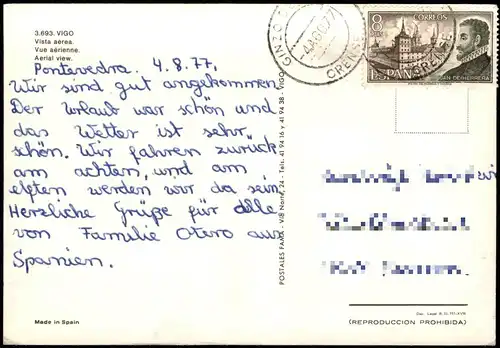 3.693. VIGO
Vista aérea.
Vue aérienne.
Aerial view.
Pontevedra. 4.8.77.
Wir sind gut angekommen.
Der Urlaub war schön und
das Wetter ist sehr
schön. Wir fahren zurück
am achten, und am
elften werden wir da sein.
Herzliche Grüße für alle
von Familie Otero aus
Spanien.
Made in Spain
POSTALES FAMA - VIA NORTE, 24 - Tels. 41 94 16 y 41 94 38 - VIGO
GINZO
ORENSE
8
PTAS
CORREOS
ESPAÑA
JUAN DE HERRERA
(REPRODUCCION PROHIBIDA)